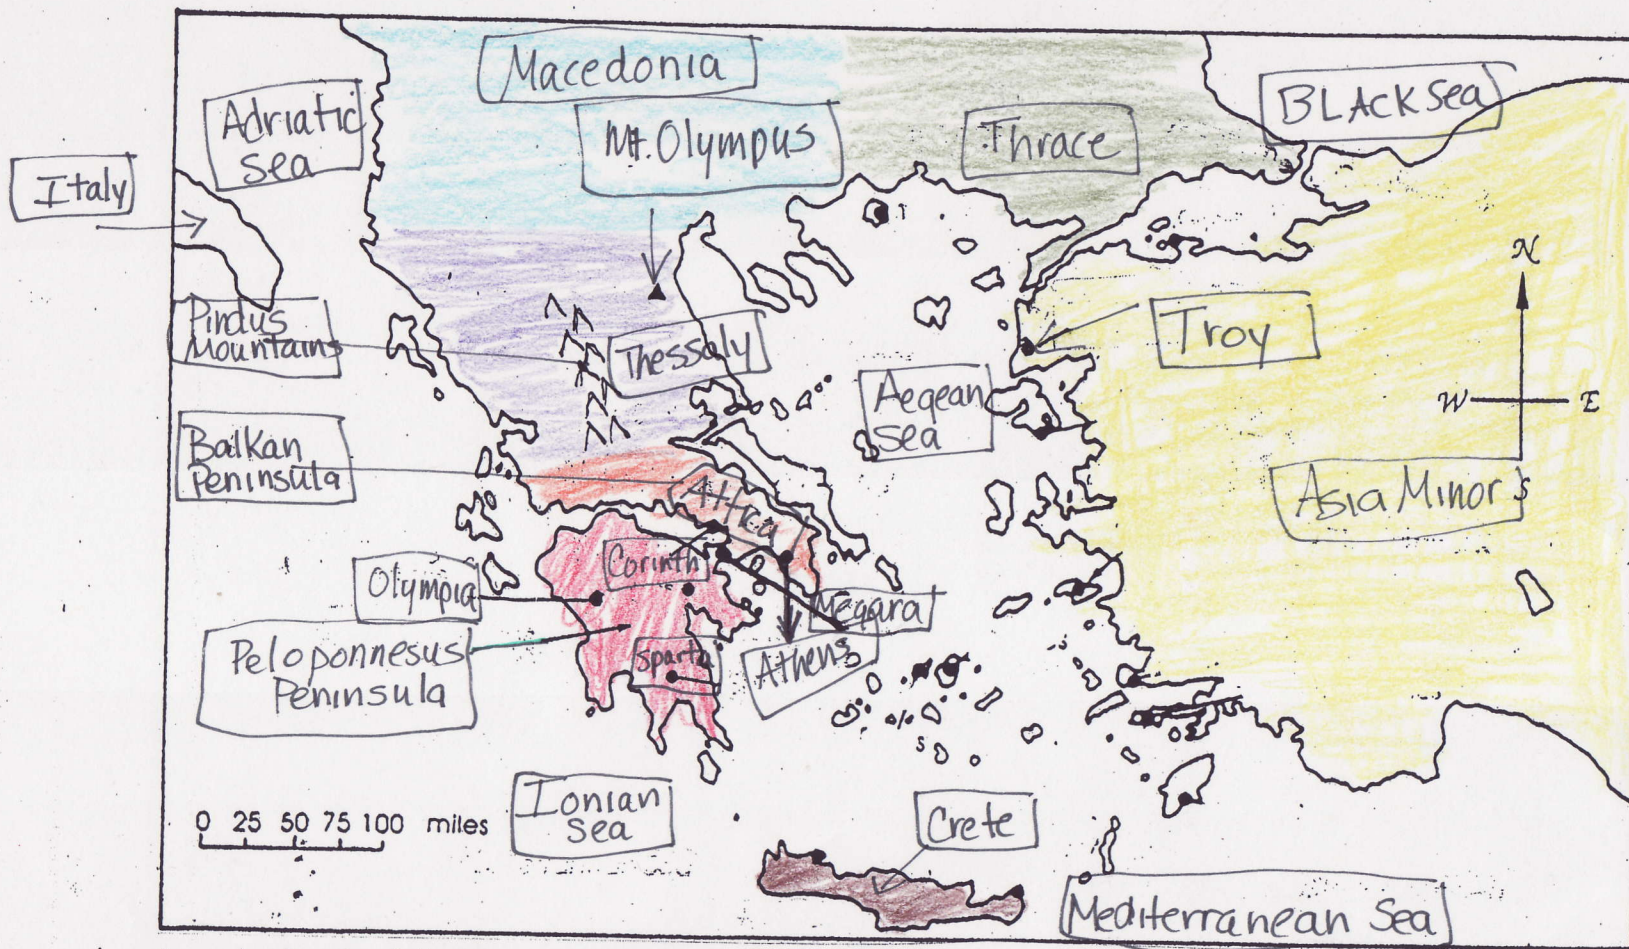 Macedonia
Adriatic
Sea
Mt. Olympus
Thrace
BLACK Sea
Italy
N
Pindus
Mountains
Thessaly
Troy
Aegean
Sea
W
E
Balkan
Peninsula
Attica
Asia Minor
S
Corinth
Olympia
Megara
Peloponnesus
Peninsula
Sparta
Athens
Ionian
Sea
Crete
0 25 50 75 100 miles
Mediterranean Sea